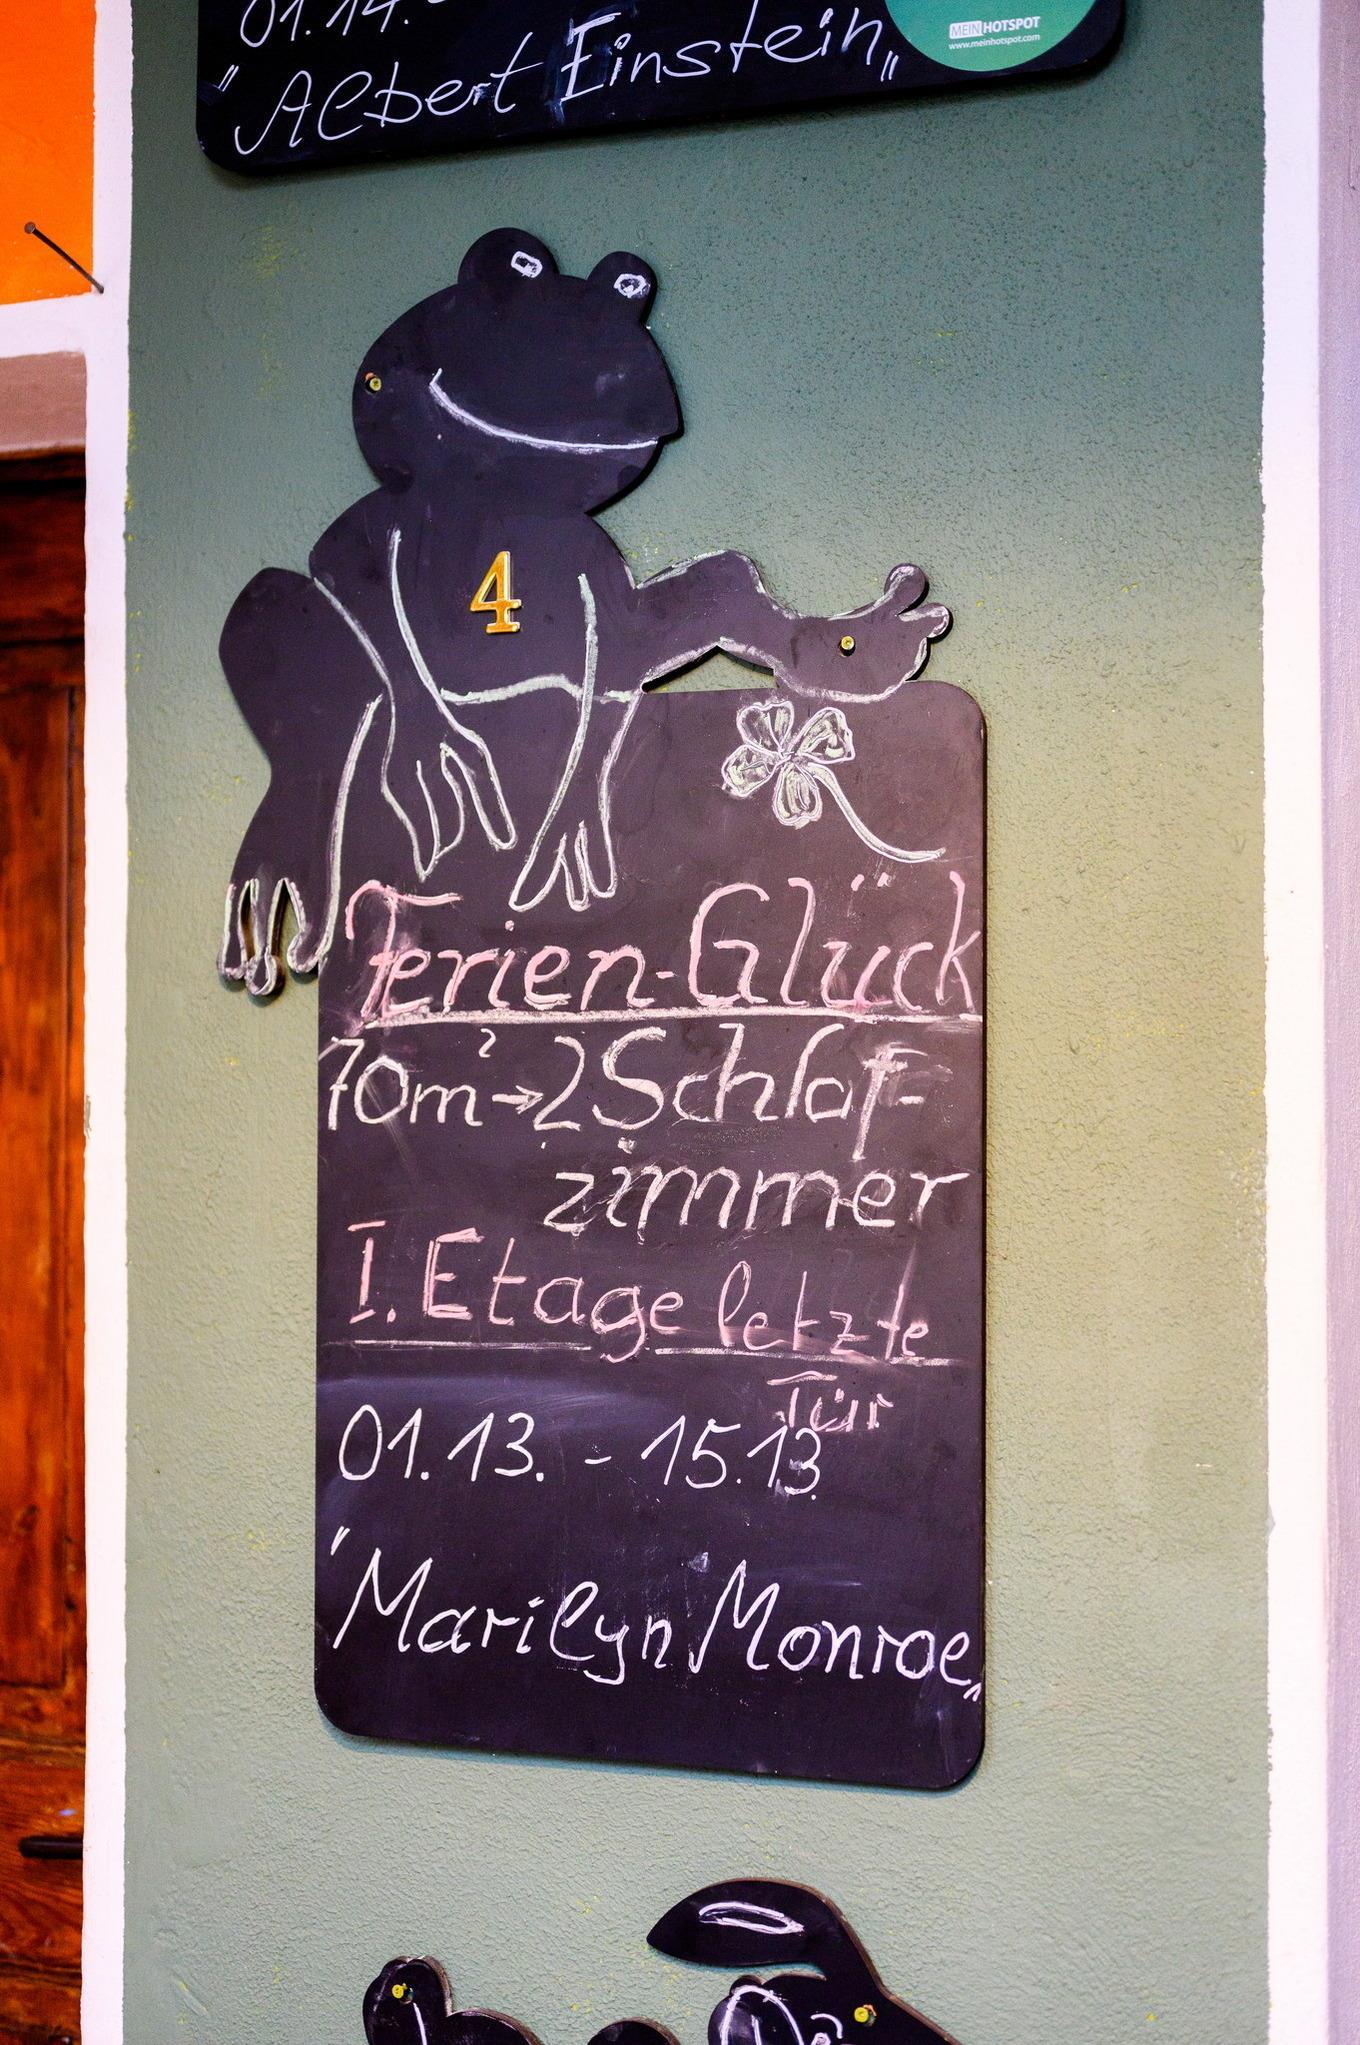 01.14.-
"Albert Einstein"
MEIN HOTSPOT
www.meinhotspot.com
4
Ferien-Glück
70m²→2Schlaf-
zimmer
I. Etage letzte
Tür
01.13. - 15.13.
"Marilyn Monroe"